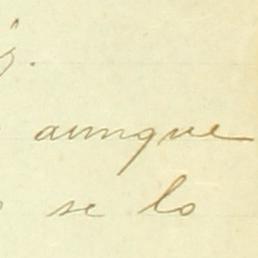 aunque
se lo